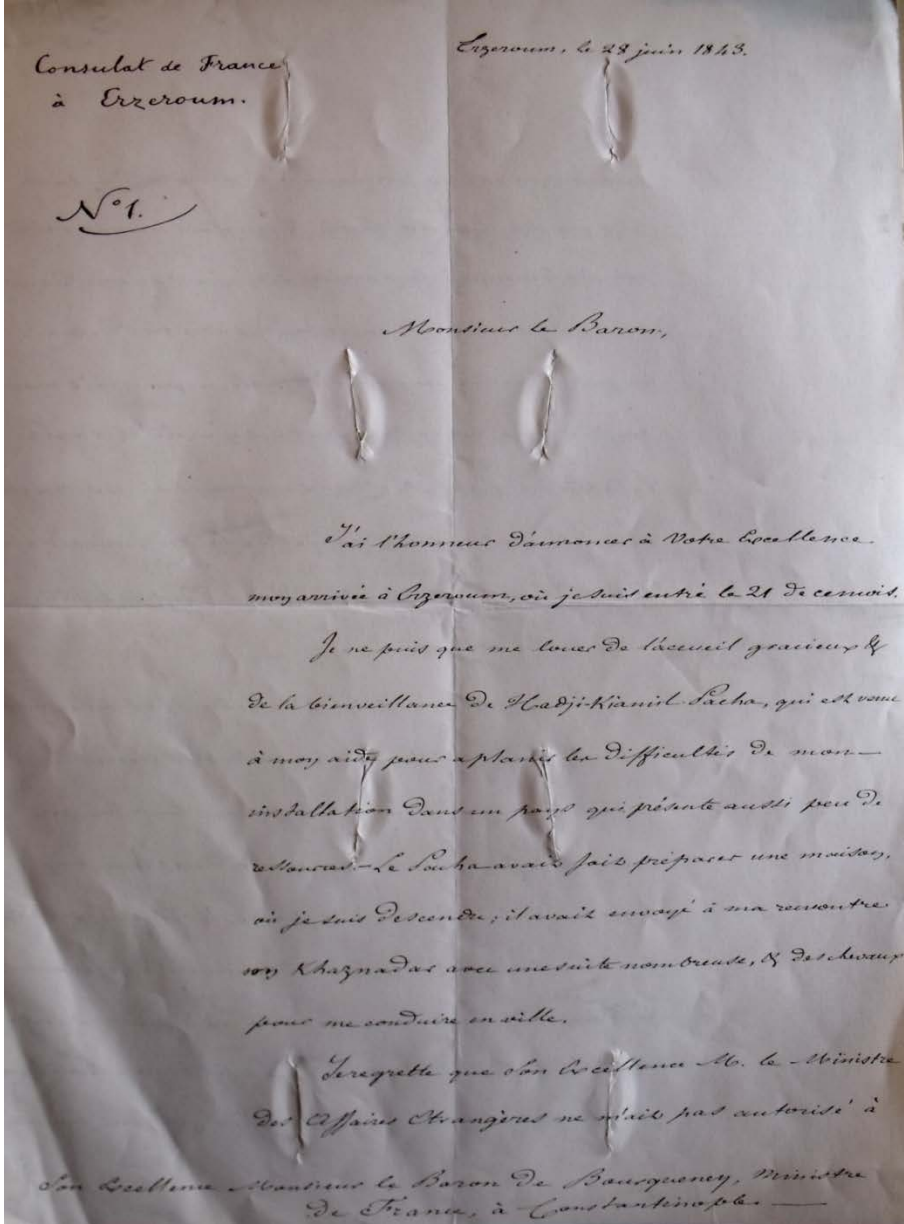 Consulat de France
à Erzeroum.
Erzeroum, le 28 juin 1843.
N° 1.
Monsieur le Baron,
J'ai l'honneur d'annoncer à Votre Excellence
mon arrivée à Erzeroum, où je suis entré le 21 de ce mois.
Je ne puis que me louer de l'accueil gracieux &
de la bienveillance de Hadji-Kiamil Pacha, qui est venu
à mon aide pour aplanir les difficultés de mon
installation dans un pays qui présente aussi peu de
ressources. – Le Pacha avait fait préparer une maison,
où je suis descendu; il avait envoyé à ma rencontre
son Khaznadar avec une suite nombreuse, & des chevaux
pour me conduire en ville.
Je regrette que Son Excellence M. le Ministre
des Affaires Etrangères ne m'ait pas autorisé à
Son Excellence Monsieur le Baron de Bourqueney, Ministre
de France, à Constantinople. —